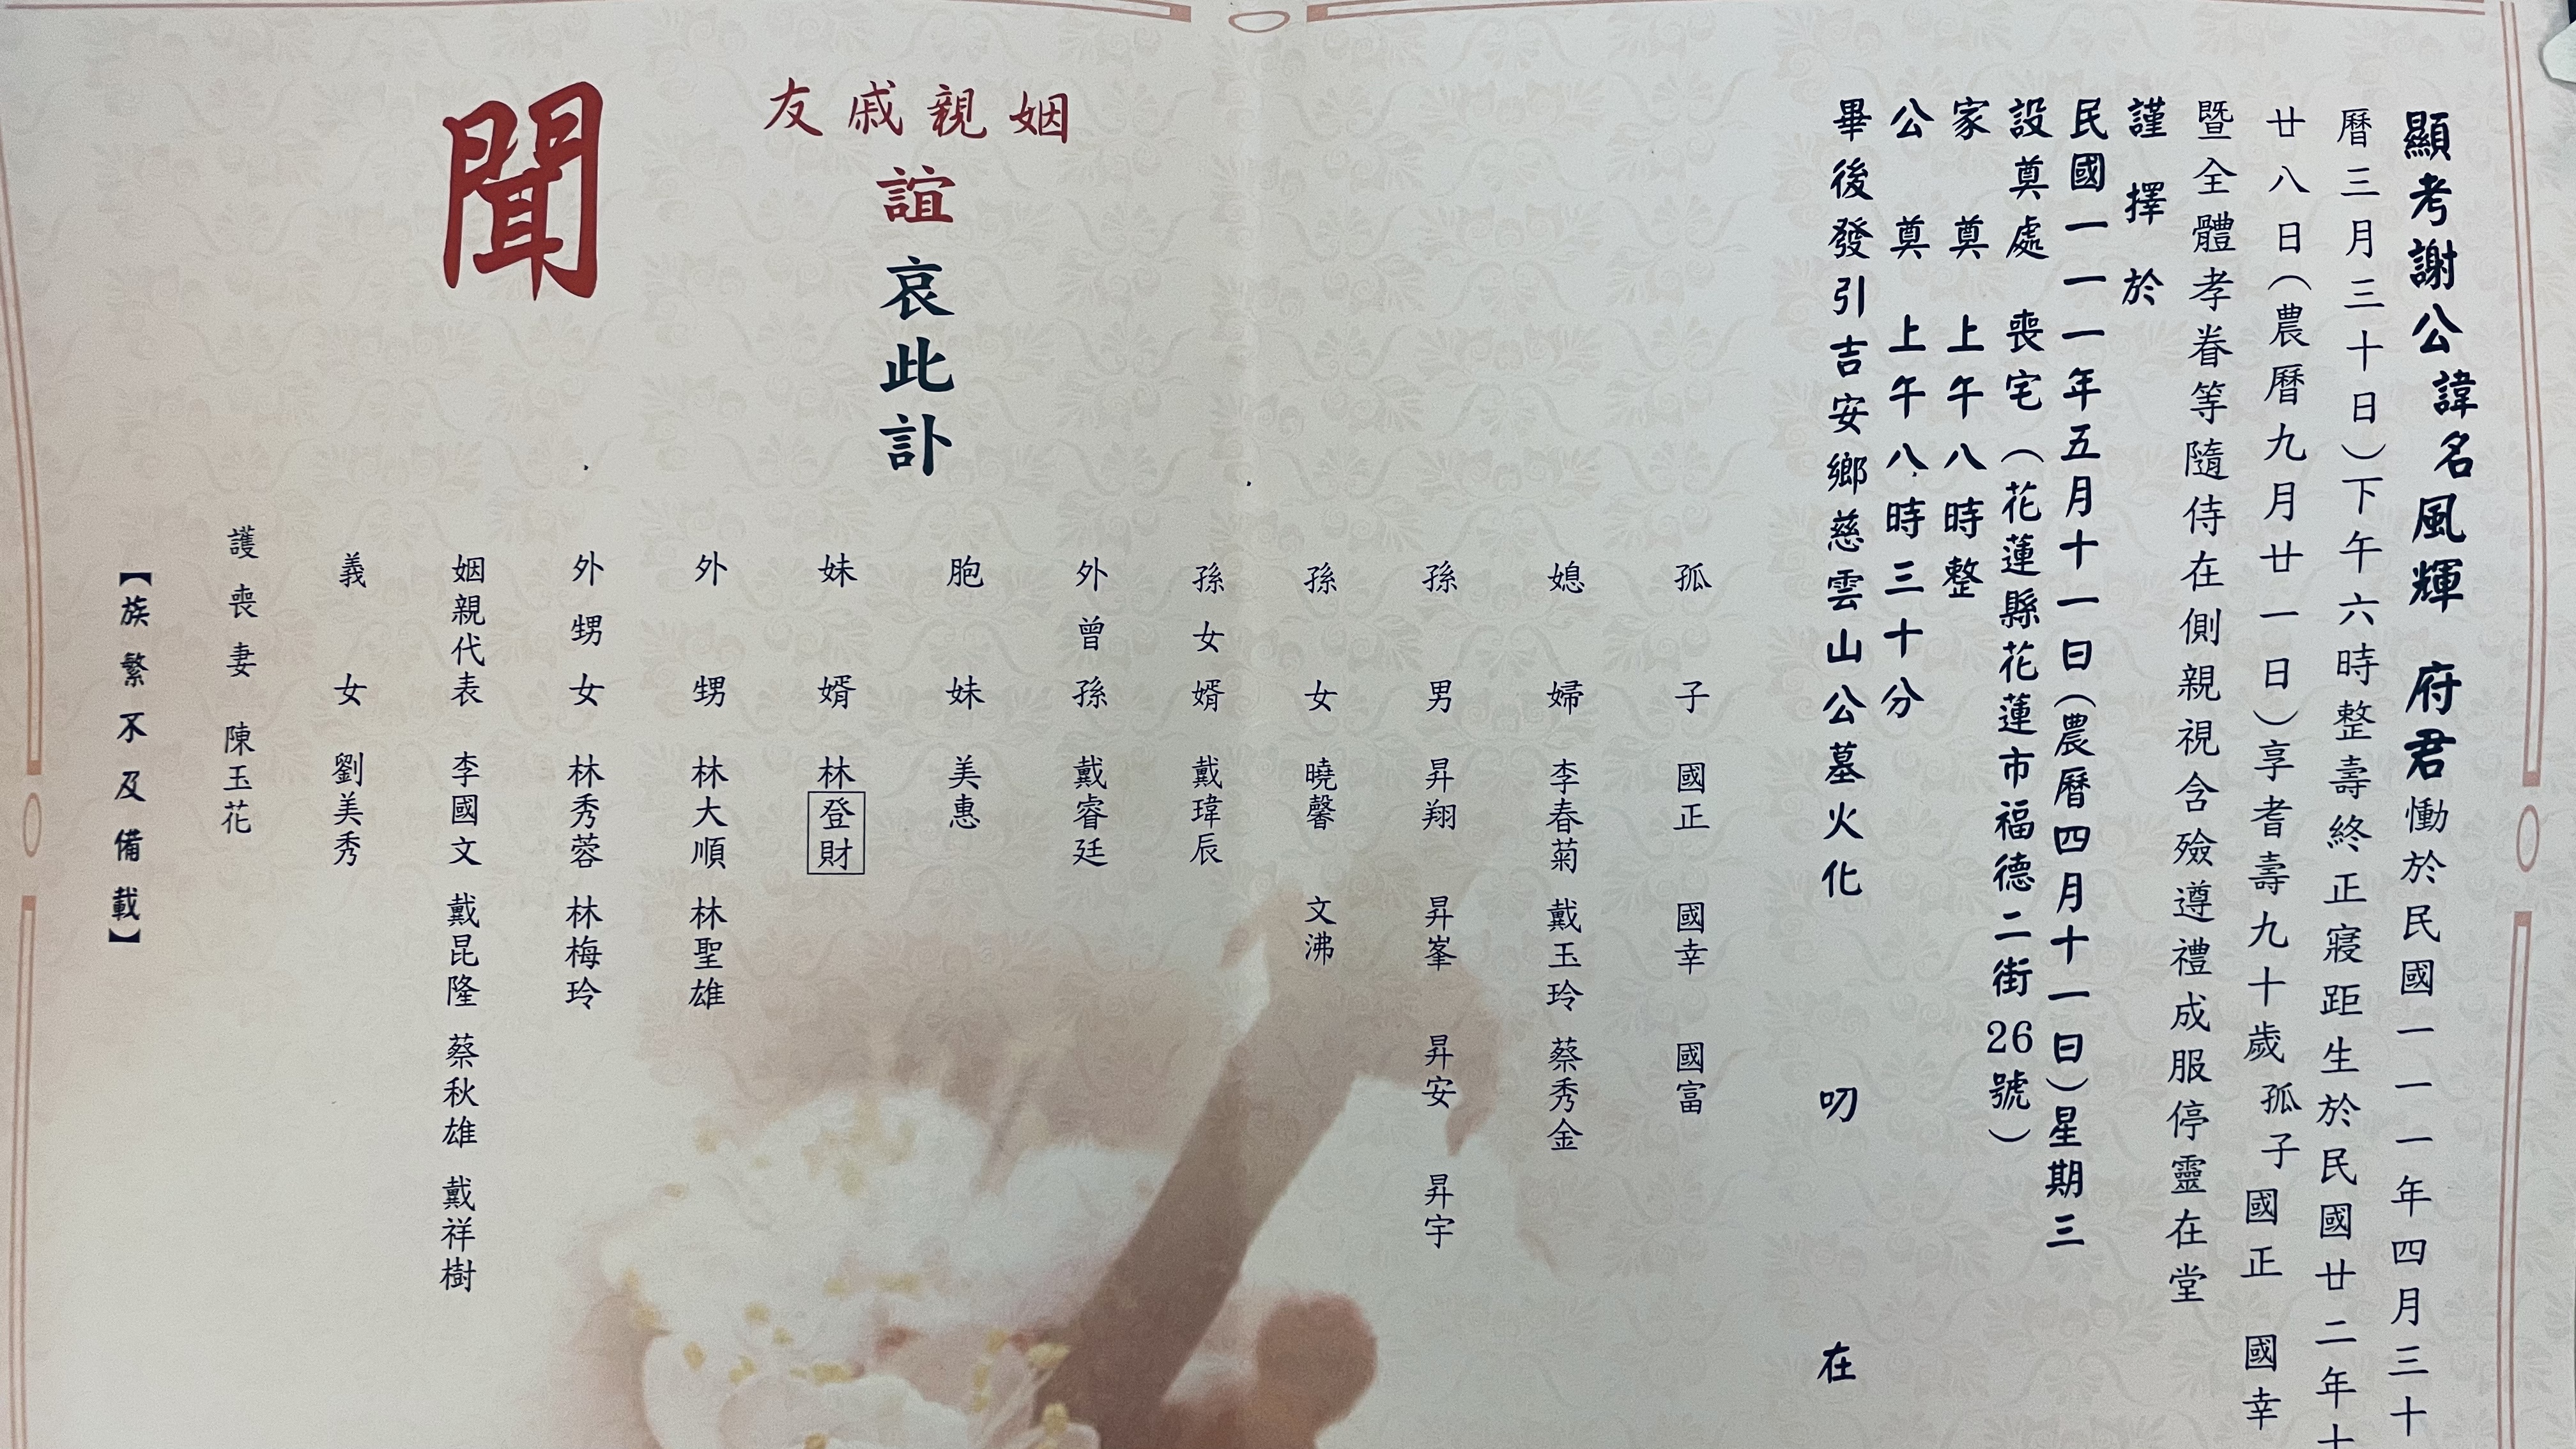 顯考謝公諱名風輝 府君慟於民國一一一年四月三十
曆三月三十日）下午六時整壽終正寢距生於民國廿二年十
廿八日（農曆九月廿一日）享耆壽九十歲 孤子 國正 國幸
暨全體孝眷等隨侍在側親視含殮遵禮成服停靈在堂
謹擇於
民國一一一年五月十一日（農曆四月十一日）星期三
設奠處 喪宅（花蓮縣花蓮市福德二街26號）
家奠 上午八時整
公奠 上午八時三十分
畢後發引吉安鄉慈雲山公墓火化 叨 在
孤子 國正 國幸 國富
媳婦 李春菊 戴玉玲 蔡秀金
孫男 昇翔 昇峯 昇安 昇宇
孫女 曉馨 文沸
孫女婿 戴瑋辰
外曾孫 戴睿廷
姻親戚友
誼哀此訃
胞妹 美惠
妹婿 林登財
外甥 林大順 林聖雄
外甥女 林秀蓉 林梅玲
聞
姻親代表 李國文 戴昆隆 蔡秋雄 戴祥樹
義女 劉美秀
護喪妻 陳玉花
【族繁不及備載】